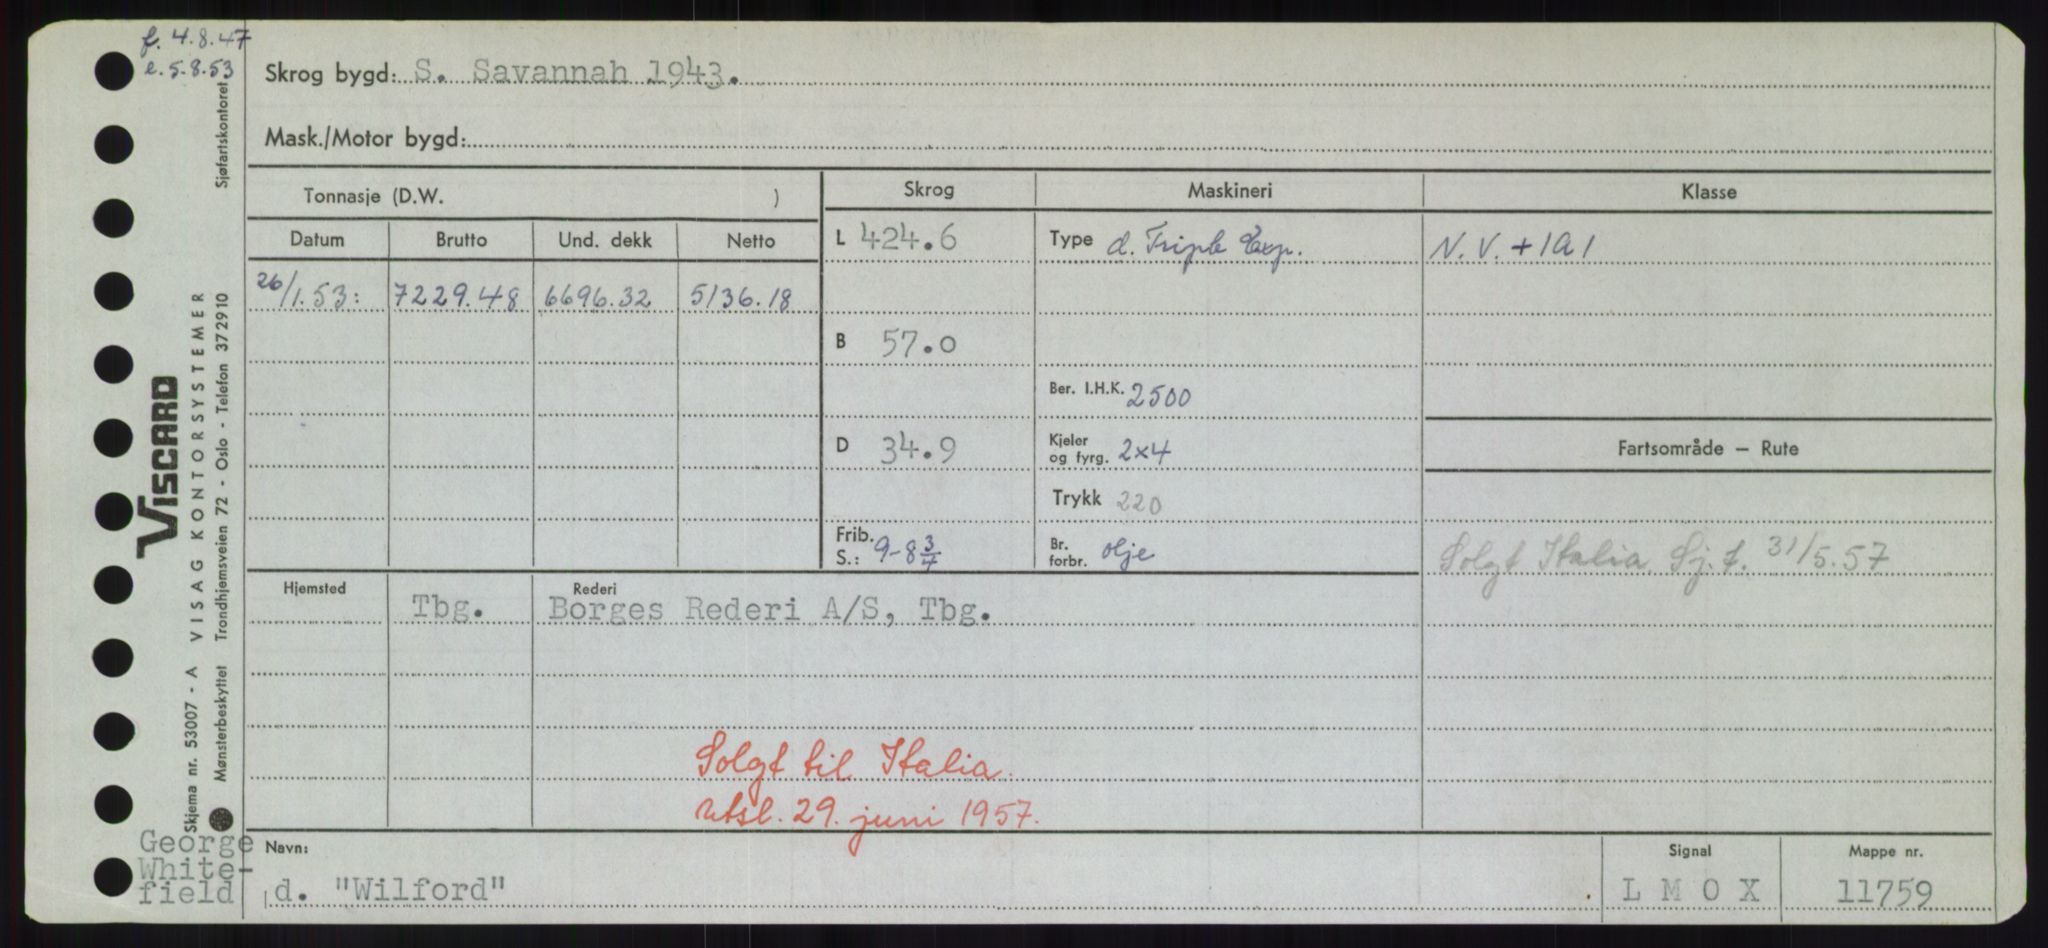 f. 4.8.47
e. 5.8.53
Skrog bygd: S. Savannah 1943.
Mask./Motor bygd:
Tonnasje (D.W. )
Skrog
Maskineri
Klasse
Datum
Brutto
Und. dekk
Netto
L 424.6
Type d. Triple Exp.
N.V. + 1A1
26/1.53: 7229.48 6696.32 5136.18
B 57.0
Ber. I.H.K. 2500
D 34.9
Kjeler
og fyrg. 2x4
Fartsområde – Rute
Trykk 220
Frib.
S.: 9-8 3/4
Br.
forbr. olje
Solgt Italia Sj.f. 31/5.57
Hjemsted
Rederi
Tbg. Borges Rederi A/S, Tbg.
Solgt til Italia.
utsl. 29. juni 1957.
George
White-
field
Navn:
d. "Wilford"
Signal
L M O X
Mappe nr.
11759
VISCARD
Skjema nr. 53007 - A VISAG KONTORSYSTEMER
Mønsterbeskyttet Trondhjemsveien 72 - Oslo - Telefon 372910 Sjøfartskontoret